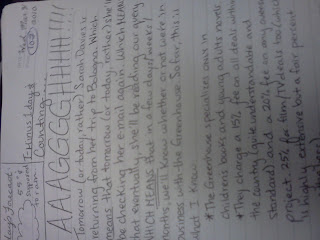 Wed. Mar 3
2010
T-minus 1 day &
Counting...
AAAGGGGHHHH!!!!
Tomorrow (or today, rather) Sarah Davies is
returning from her trip to Bologna. Which
means that tomorrow (or today, rather) she'll
be checking her email again. Which MEANS
that eventually, she'll be reading our query
WHICH MEANS that in a few days/weeks/
months, we'll know whether or not we're in
business with the Greenhouse. So far, this is
what I know:
* The Greenhouse specializes only in
children's books and young adults novels.
* They charge a 15% fee on all deals within
the country (quite understandable and
standard) and a 20% fee on any overseas
project. 25% for film/TV deals too (which
is highly extensive but a fair percent